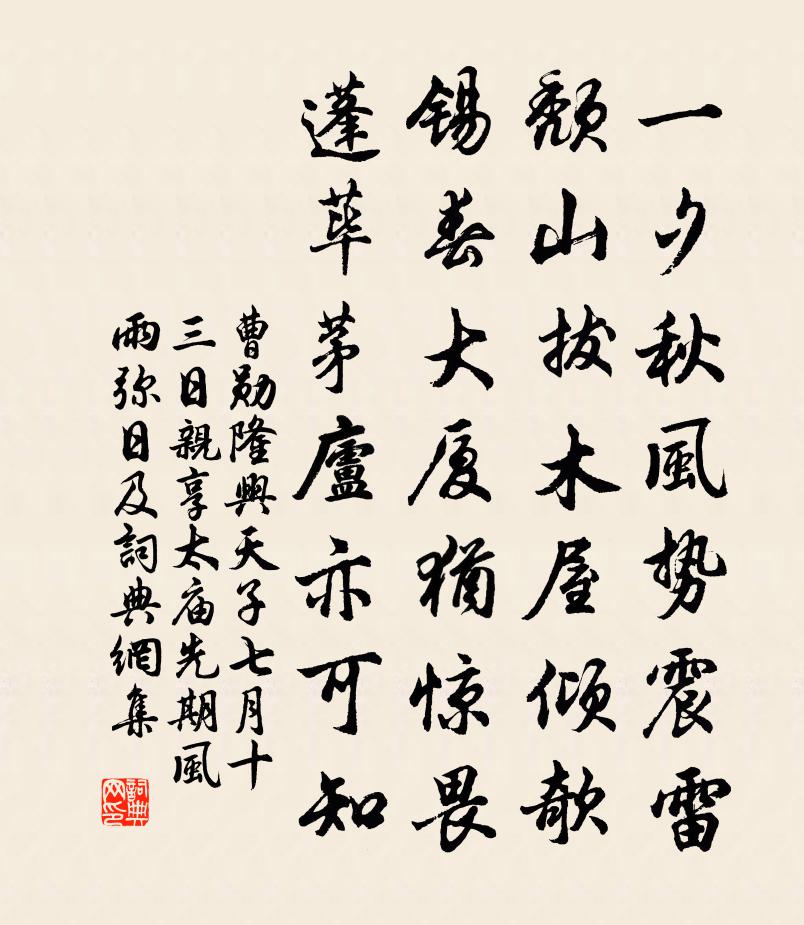 一夕秋風勢震雷
頹山拔木屋傾欹
錫春大厦猶惊畏
蓬蓽茅廬亦可知
曹勛隆興天子七月十
三日親享太庙先期風
雨弥日及詞典網集
詞典
网印